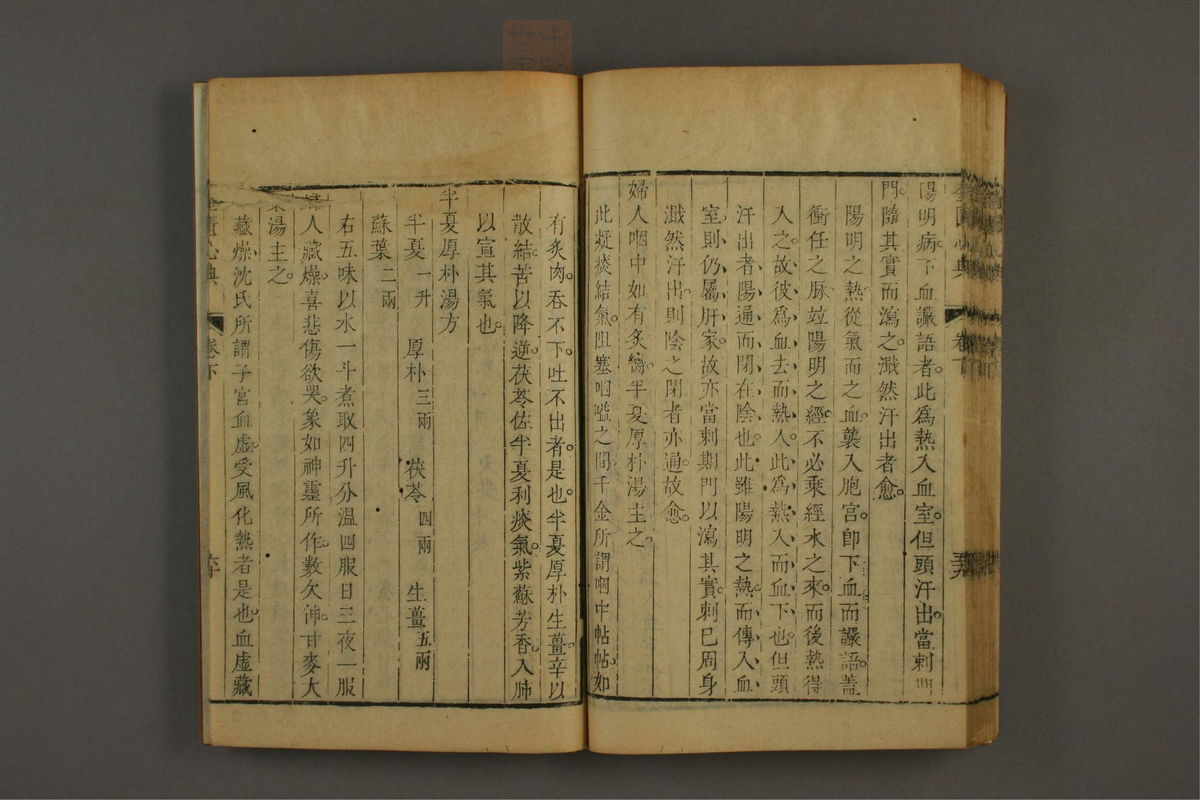 陽明病下血讝語者此爲熱入血室但頭汗出當刺期
門隨其實而瀉之濈然汗出者愈
陽明之熱從氣而之血襲入胞宮卽下血而讝語蓋
衝任之脉竝陽明之經不必乘經水之來而後熱得
入之故彼爲血去而熱入此爲熱入而血下也但頭
汗出者陽通而閉在陰也此雖陽明之熱而傳入血
室則仍屬肝家故亦當刺期門以瀉其實刺已周身
濈然汗出則陰之閉者亦通故愈
婦人咽中如有炙臠半夏厚朴湯主之
此凝痰結氣阻塞咽嗌之間千金所謂咽中帖帖如
有炙肉吞不下吐不出者是也半夏厚朴生薑辛以
散結苦以降逆茯苓佐半夏利痰氣紫蘇芳香入肺
以宣其氣也
半夏厚朴湯方
半夏一升 厚朴三兩 茯苓四兩 生薑五兩
蘇葉二兩
右五味以水一斗煮取四升分溫四服日三夜一服
婦人藏燥喜悲傷欲哭象如神靈所作數欠伸甘麥大
棗湯主之
藏燥沈氏所謂子宮血虛受風化熱者是也血虛藏
金匱心典 卷下